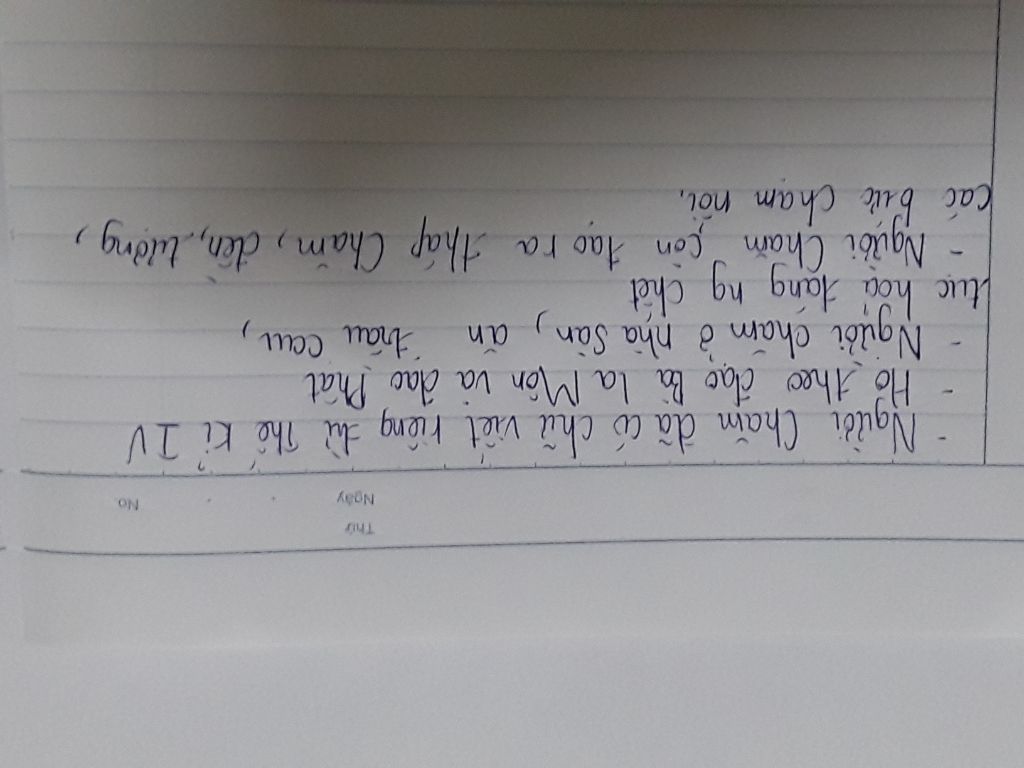 Thứ
Ngày
No.
- Người Chăm đã có chữ viết riêng từ Thế kỉ IV
- Họ theo đạo Bà la Môn và đạo Phật
- Người chăm ở nhà sàn, ăn trầu cau,
tục hoả táng ng chết
- Người Chăm còn tạo ra tháp Chăm, đền, tượng,
các bức chạm nổi.